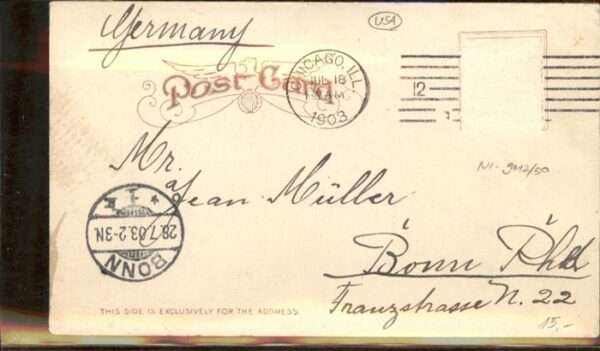 Germany
USA
Post Card
CHICAGO, ILL.
JUL 18
AM
1903
12
Mr.
Jean Müller
Bonn Rhd
Franzstrasse N. 22
BONN
28.7.03.2-3N.
* 1 e
THIS SIDE IS EXCLUSIVELY FOR THE ADDRESS.
15,-